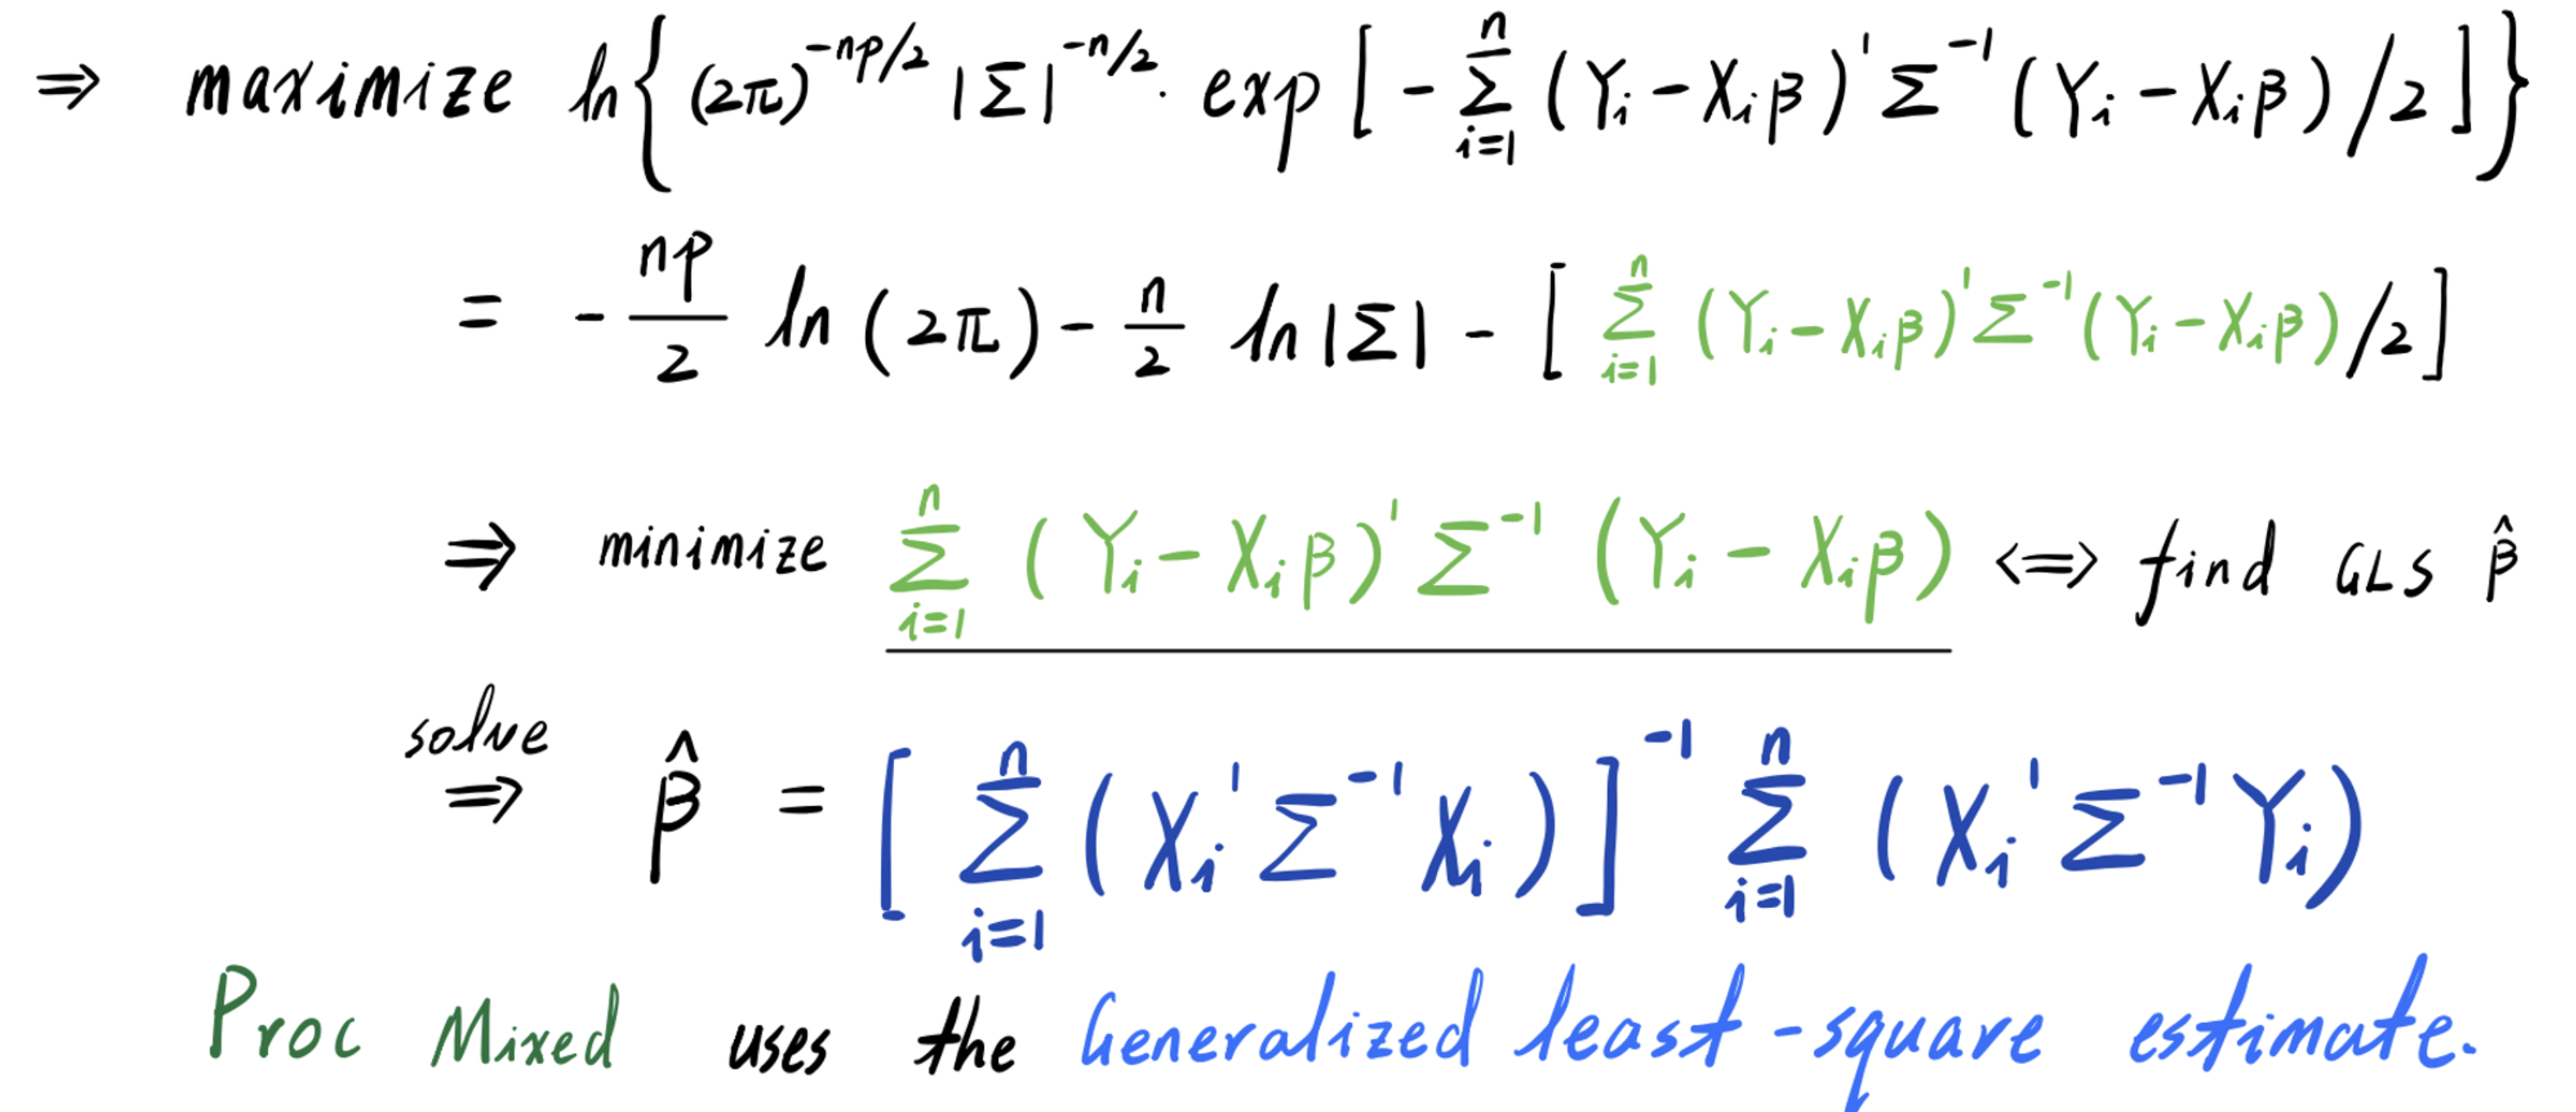 ⇒ maximize ln{(2π)^{-np/2} |Σ|^{-n/2} · exp[-∑_{i=1}^{n} (Y_i - X_iβ)' Σ^{-1} (Y_i - X_iβ)/2]}
= -\frac{np}{2} ln(2π) - \frac{n}{2} ln|Σ| - [∑_{i=1}^{n} (Y_i - X_iβ)' Σ^{-1} (Y_i - X_iβ)/2]
⇒ minimize ∑_{i=1}^{n} (Y_i - X_iβ)' Σ^{-1} (Y_i - X_iβ) <=> find GLS β̂
solve
⇒ β̂ = [∑_{i=1}^{n} (X_i' Σ^{-1} X_i)]^{-1} ∑_{i=1}^{n} (X_i' Σ^{-1} Y_i)
Proc Mixed uses the Generalized least-square estimate.